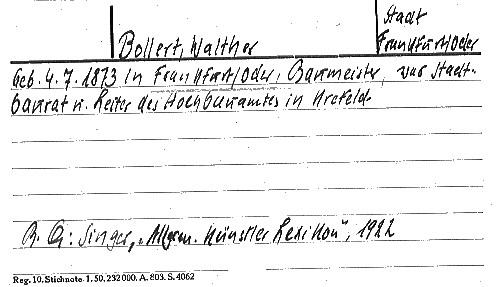 Bollert, Walther
Stadt
Frankfurt/Oder
Geb. 4. 7. 1873 in Frankfurt/Oder, Baumeister, war Stadt-
baurat u. Leiter des Hochbauamtes in Krefeld.
B. Q: Singer, „Allgem. Künstler Lexikon", 1922
Reg. 10. Stichnote. 1. 50. 232000. A. 803. S. 4062